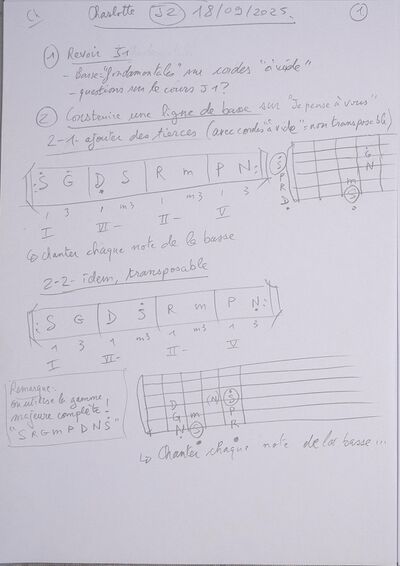 Ch Charlotte J2 18/09/2025. 1
1 Revoir J1
- Basse = "fondamentales" sur cordes "à vide"
- questions sur le cours J1?
2 Construire une ligne de basse sur "Je pense à vous"
2-1- ajouter des tierces (avec cordes "à vide" = non transposable)
S G D S R m P N
1 3 1 m3 1 m3 1 3
I VI- II- V
S P R D
G N m S
↳ chanter chaque note de la basse
2-2- idem, transposable
S G D S R m P N
1 3 1 m3 1 m3 1 3
I VI- II- V
Remarque:
on utilise la gamme
majeure complète!
"S R G m P D N S"
D (N) S
G m P
N S R
↳ Chanter chaque note de la basse...